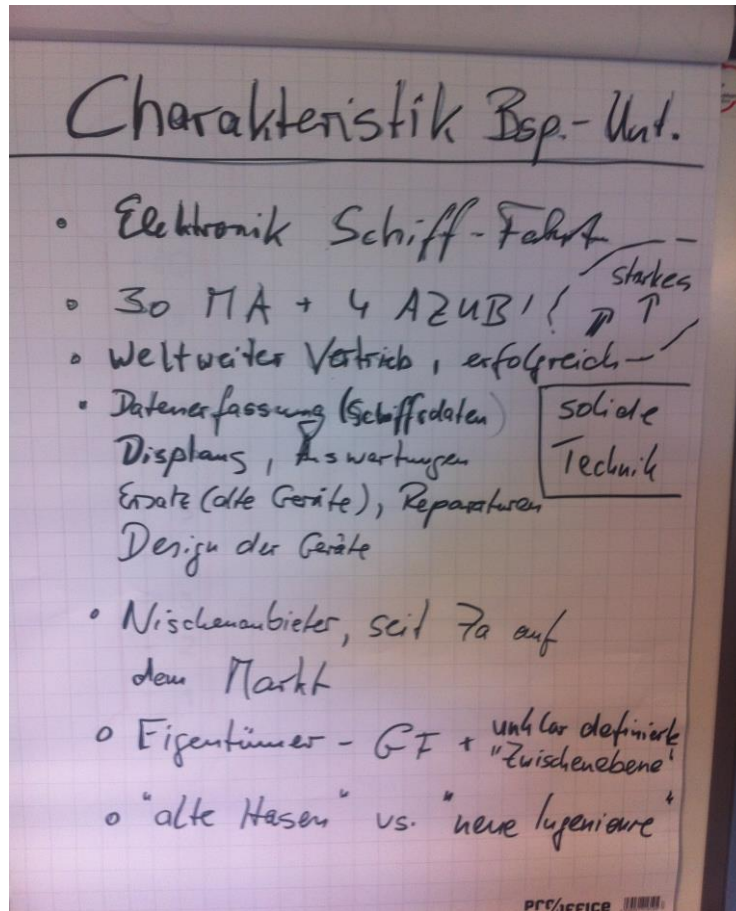 Charakteristik Bsp.-Unt.
• Elektronik Schiff-Fahrt
• 30 MA + 4 AZUBI
starkes
• Weltweiter Vertrieb, erfolgreich
• Datenerfassung (Schiffsdaten)
Displays, Auswertungen
Ersatz (alte Geräte), Reparaturen
Design der Geräte
solide
Technik
• Nischenanbieter, seit 7a auf
dem Markt
• Eigentümer - GF + unklar definierte
"Zwischenebene"
• "alte Hasen" vs. "neue Ingenieure"